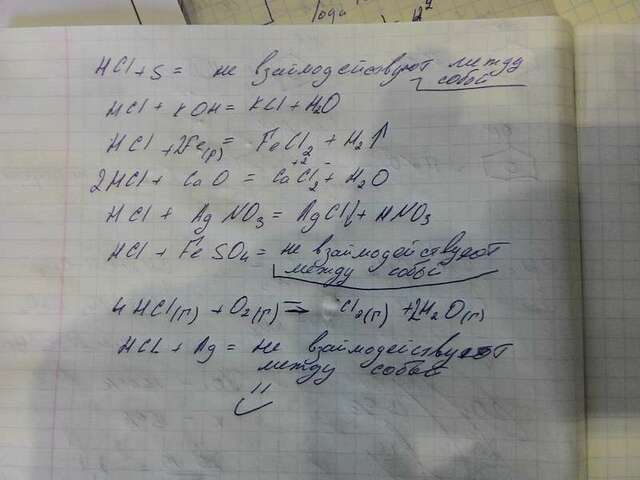 HCl + S = не взаимодействуют между
собой
HCl + KOH = KCl + H2O
HCl + 2Fe(р) = FeCl2 + H2↑
2HCl + CaO = CaCl2 + H2O
+2 -
HCl + AgNO3 = AgCl↓ + HNO3
HCl + FeSO4 = не взаимодействуют
между собой
4HCl(г) + O2(г) = → Cl2(г) + 2H2O(г)
HCl + Ag = не взаимодействуют
между собой